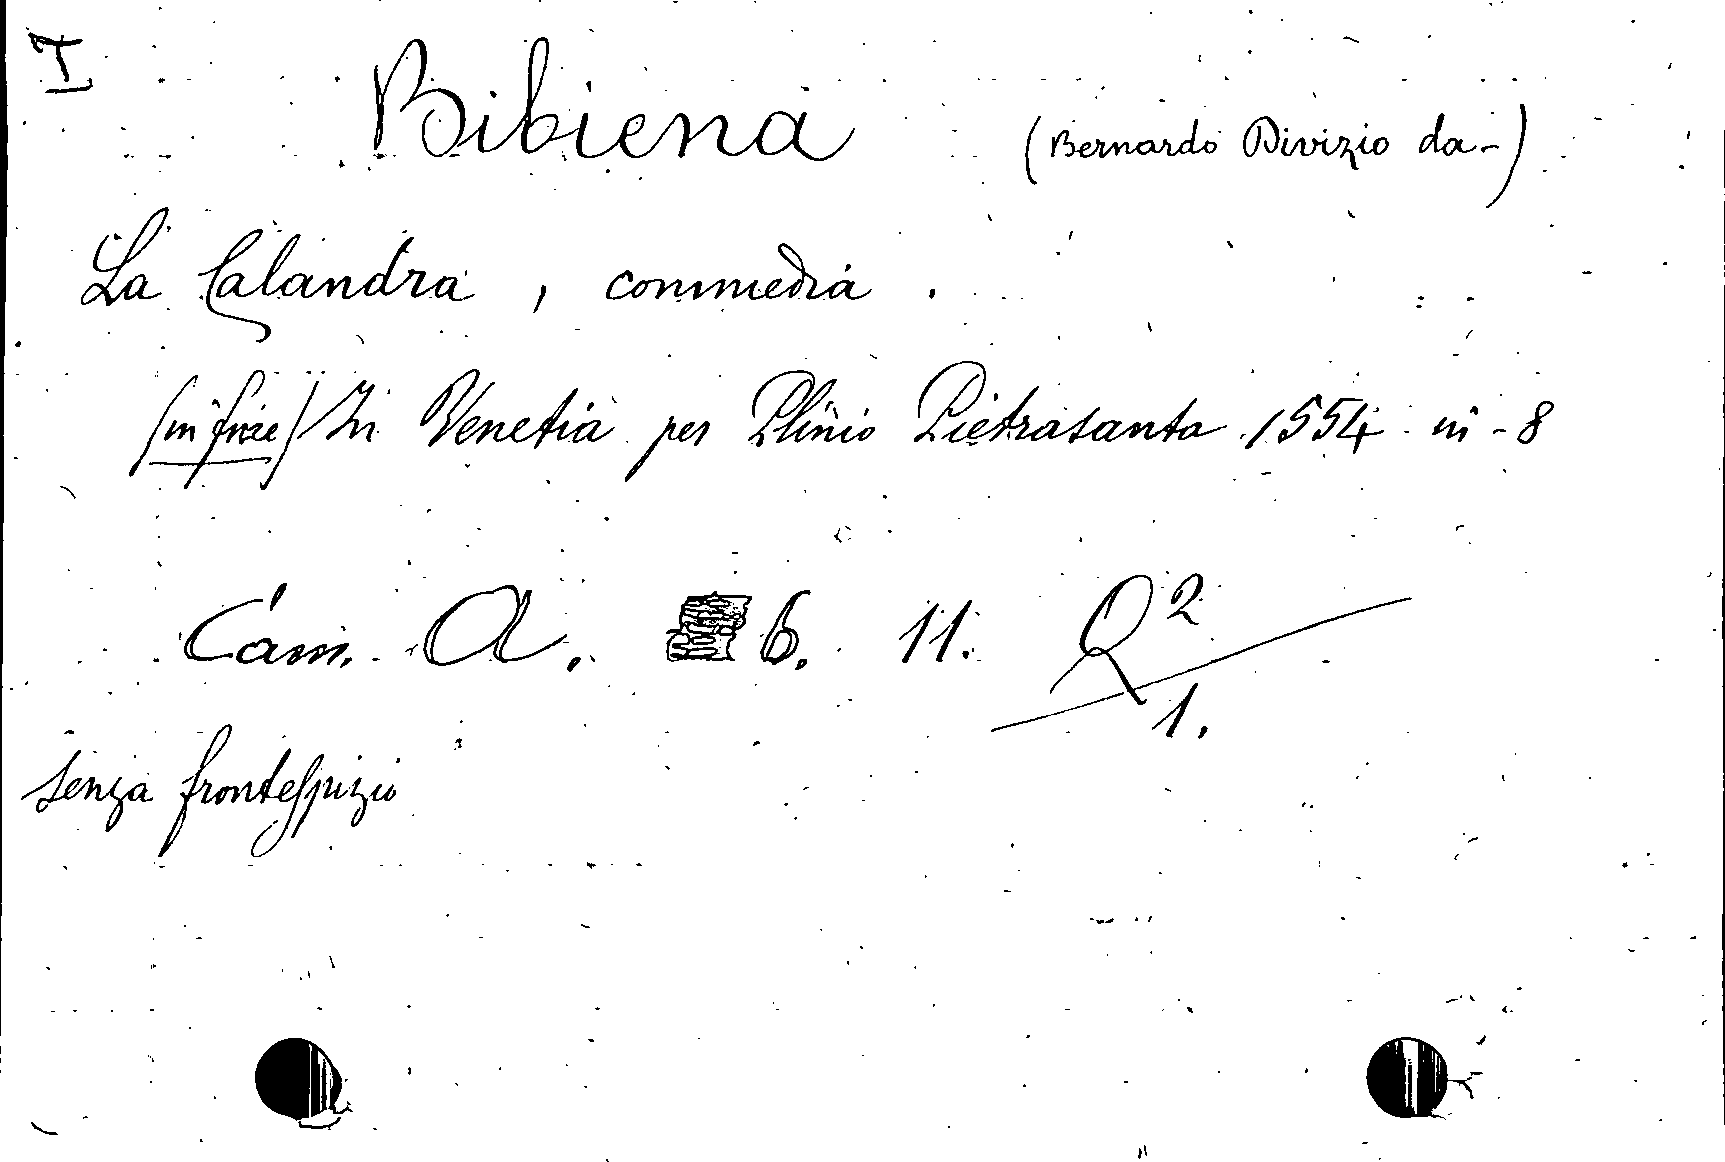 I
Bibiena (Bernardo Divizio da-)
La Calandra, commedia.
(in fine) In Venetia per Plinio Pietrasanta 1554 in-8
Cam. A. 6. 11. Q2
1.
senza frontespizio